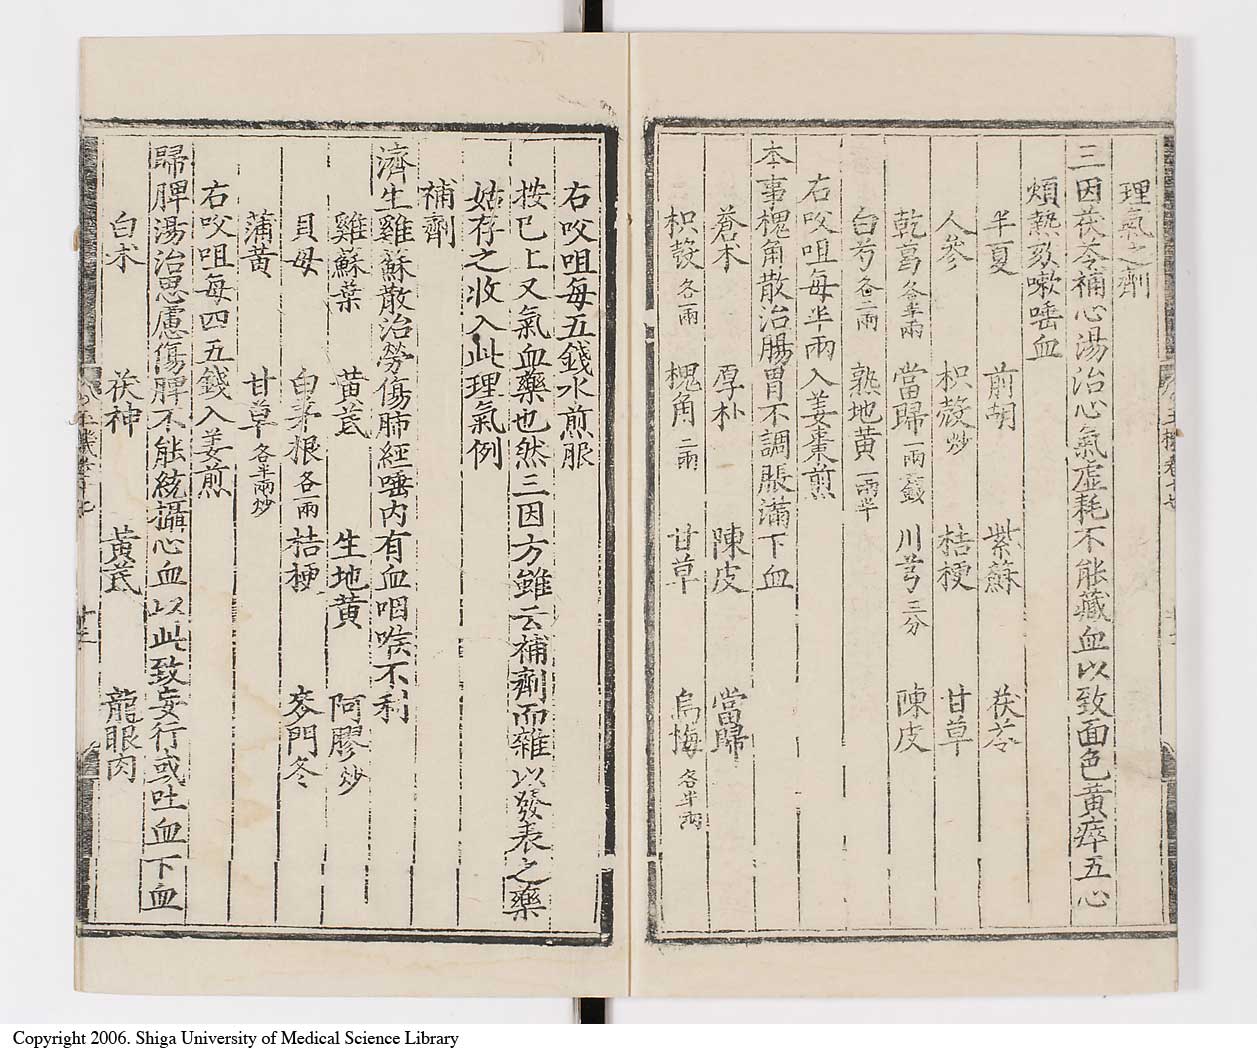 理氣之劑
三因茯苓補心湯治心氣虛耗不能藏血以致面色黃瘁五心
煩熱欬嗽唾血
半夏 前胡 紫蘇 茯苓
人參 枳殼炒 桔梗 甘草
乾葛各半兩 當歸一兩三錢 川芎三分 陳皮
白芍各二兩 熟地黃一兩半
右㕮咀每半兩入姜棗煎
本事槐角散治腸胃不調脹滿下血
蒼朮 厚朴 陳皮 當歸
枳殼各一兩 槐角二兩 甘草 烏梅各半兩
右㕮咀每五錢水煎服
按已上又氣血藥也然三因方雖云補劑而雜以發表之藥
姑存之收入此理氣例
補劑
濟生雞蘇散治勞傷肺經唾內有血咽喉不利
雞蘇葉 黃芪 生地黃 阿膠炒
貝母 白茅根各一兩 桔梗 麥門冬
蒲黃 甘草各半兩炒
右㕮咀每四五錢入姜煎
歸脾湯治思慮傷脾不能統攝心血以此致妄行或吐血下血
白朮 茯神 黃芪 龍眼肉
Copyright 2006. Shiga University of Medical Science Library